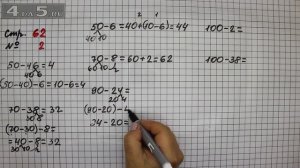 4apa5.ru
Стр. 62
№ 2
50-46=4
40 6
(50-40)-6=10-6=4
70-38=32
30 8
(70-30)-8=
=40-8=32
30 10
50-6=40+(10-6)=44
40 10
70-8=60+2=62
60 10
80-24=
20 4
(80-20)-4
100-2=
100-38=